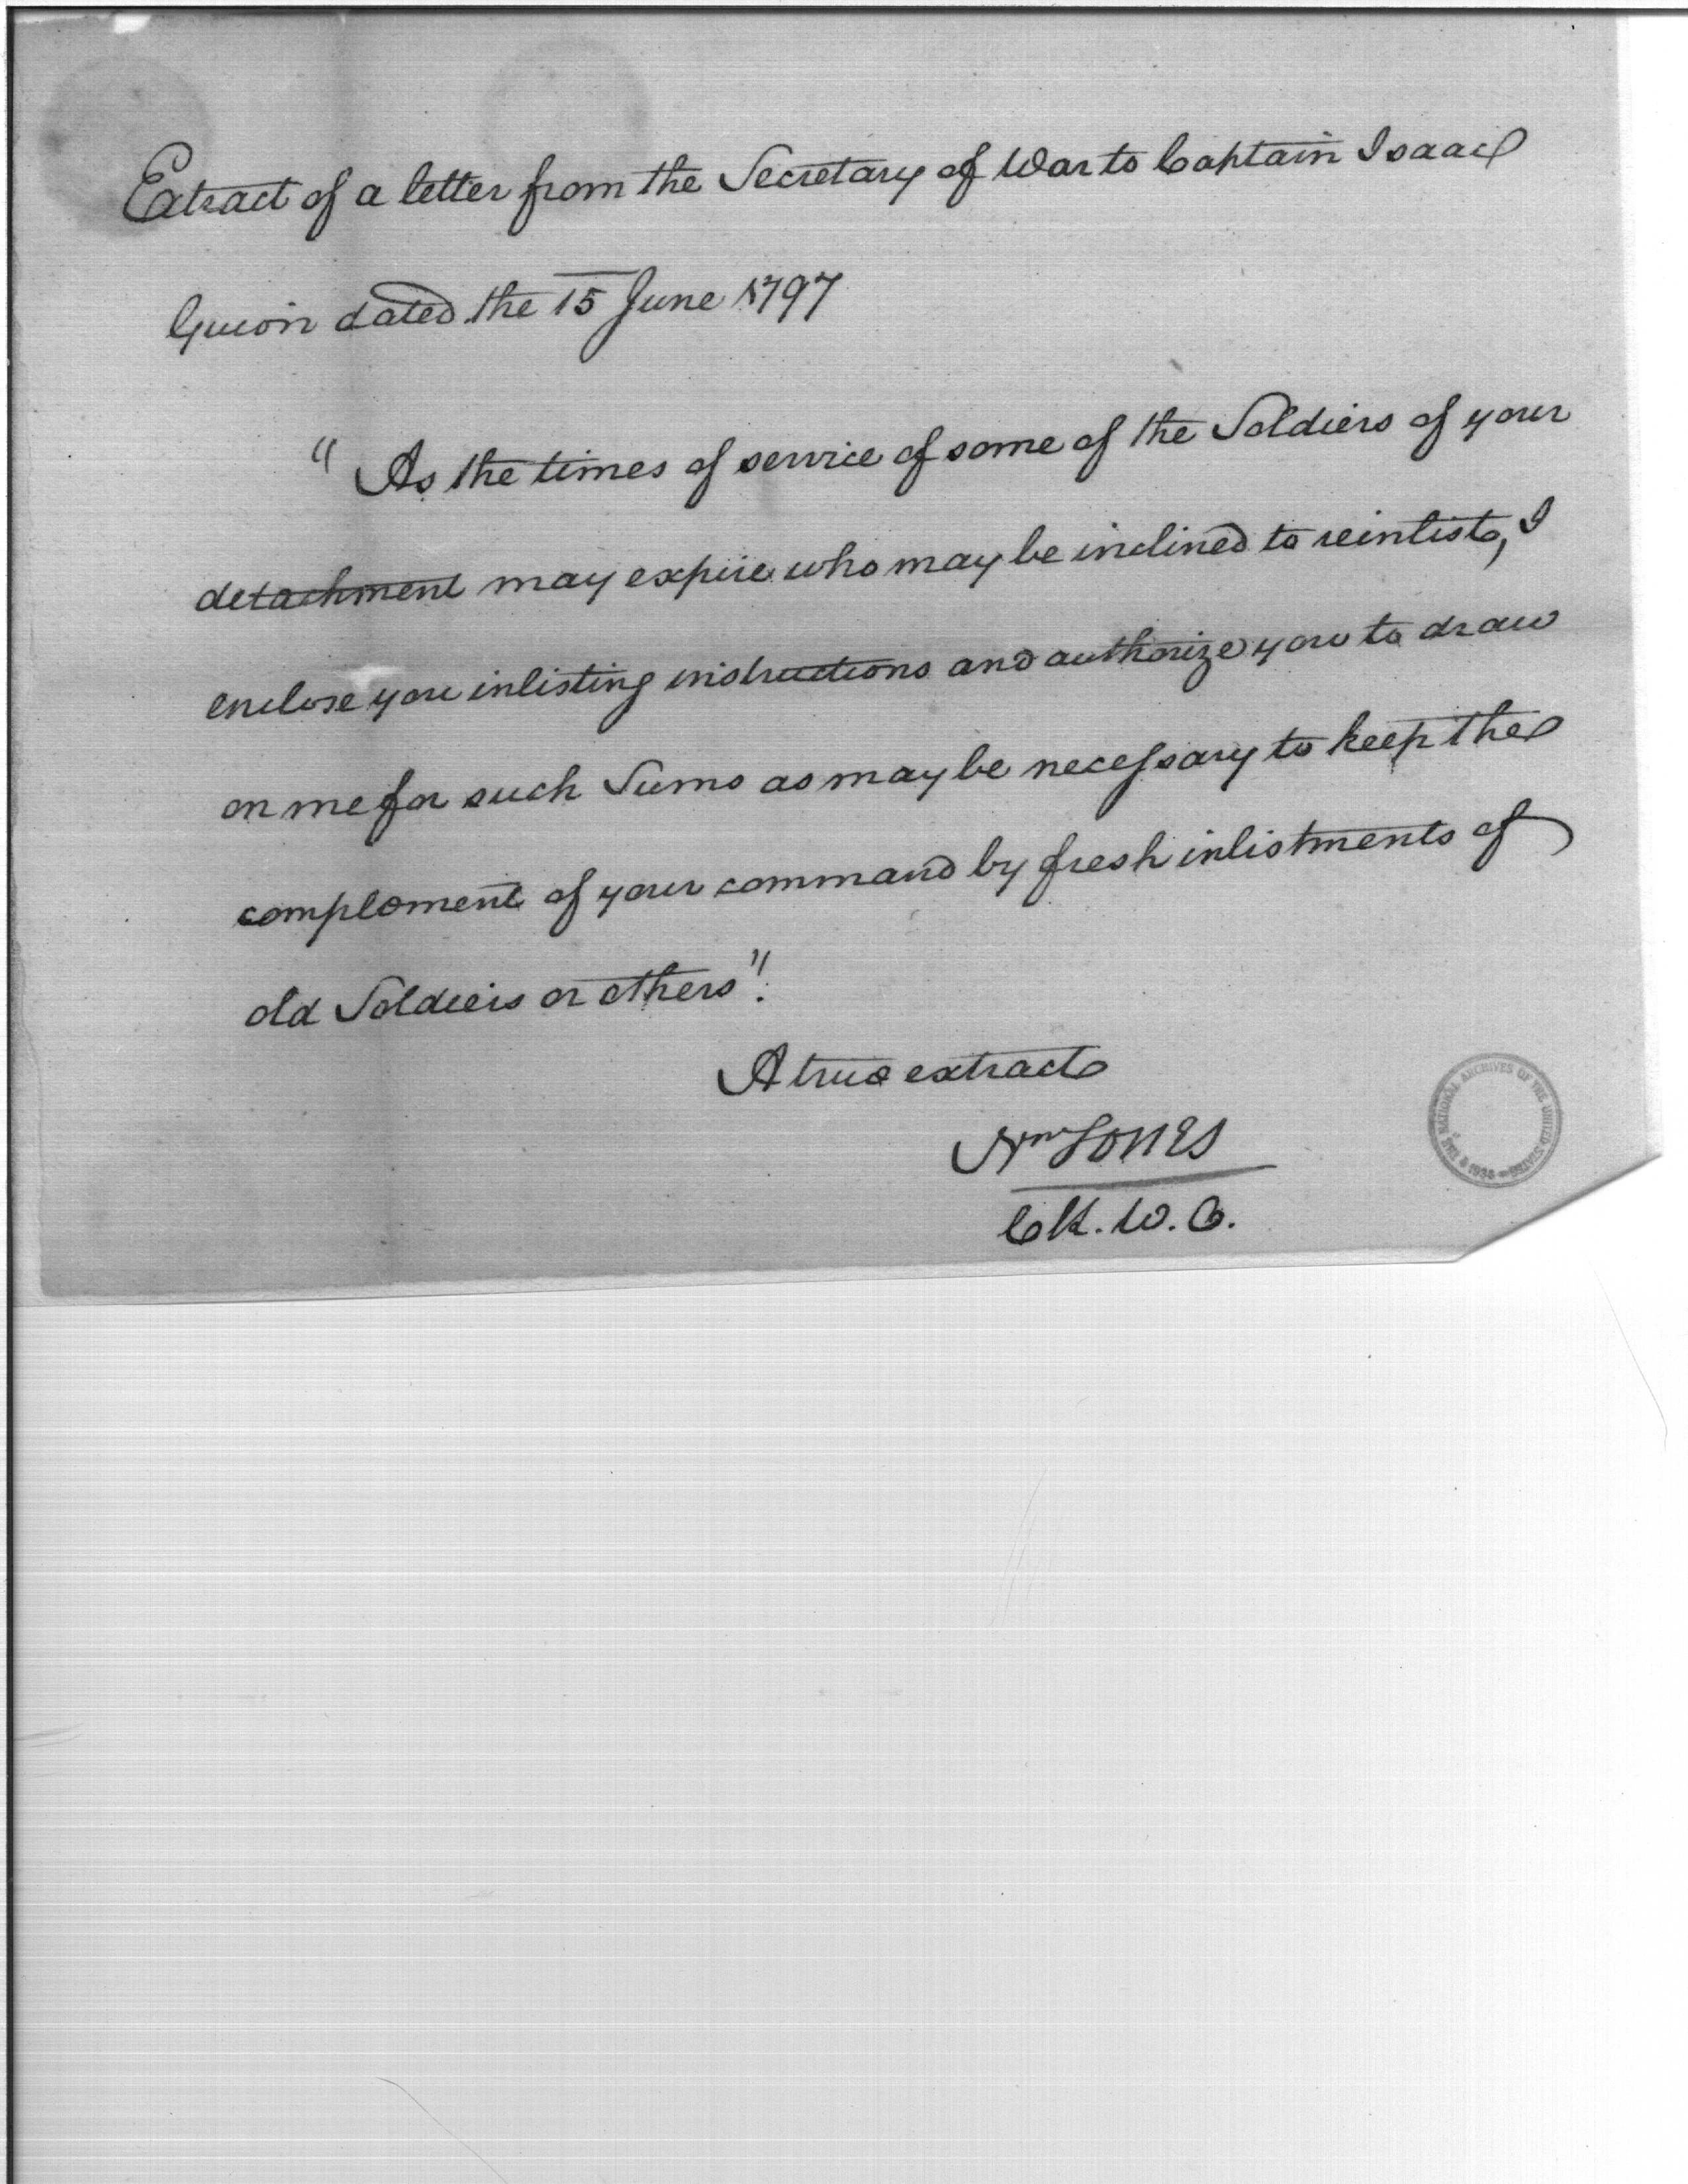 Extract of a letter from the Secretary of War to Captain Isaac
Guion dated the 15 June 1797
" As the times of service of some of the Soldiers of your
detachment may expire who may be inclined to reinlist, I
enclose you inlisting instructions and authorize you to draw
on me for such Sums as may be necessary to keep the
complement of your command by fresh inlistments of
old Soldiers or others".
A true extract
Wm Jones
Clk. W. O.
THE NATIONAL ARCHIVES OF THE UNITED STATES
1934